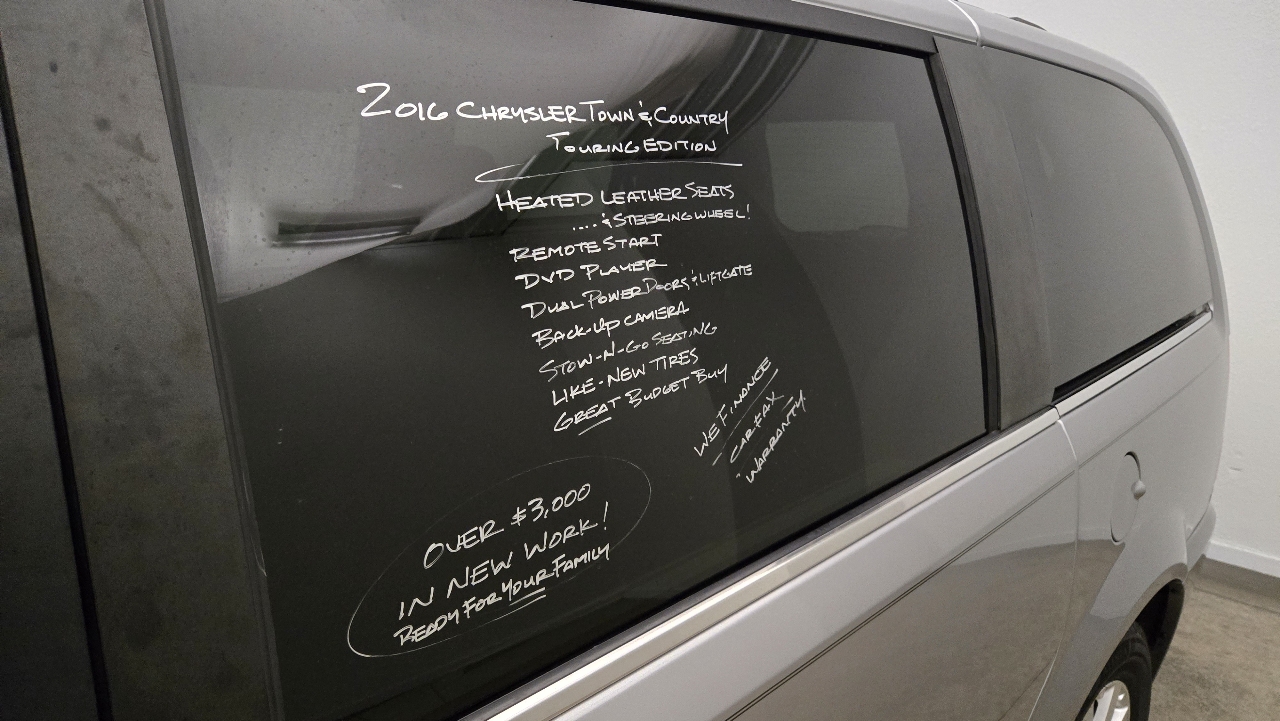 2016 CHRYSLER TOWN & COUNTRY
TOURING EDITION
HEATED LEATHER SEATS
....& STEERING WHEEL!
REMOTE START
DVD PLAYER
DUAL POWER DOORS & LIFTGATE
BACK-UP CAMERA
STOW-N-GO SEATING
LIKE-NEW TIRES
GREAT BUDGET BUY
WE FINANCE
CARFAX
WARRANTY
OVER $3,000
IN NEW WORK!
READY FOR YOUR FAMILY